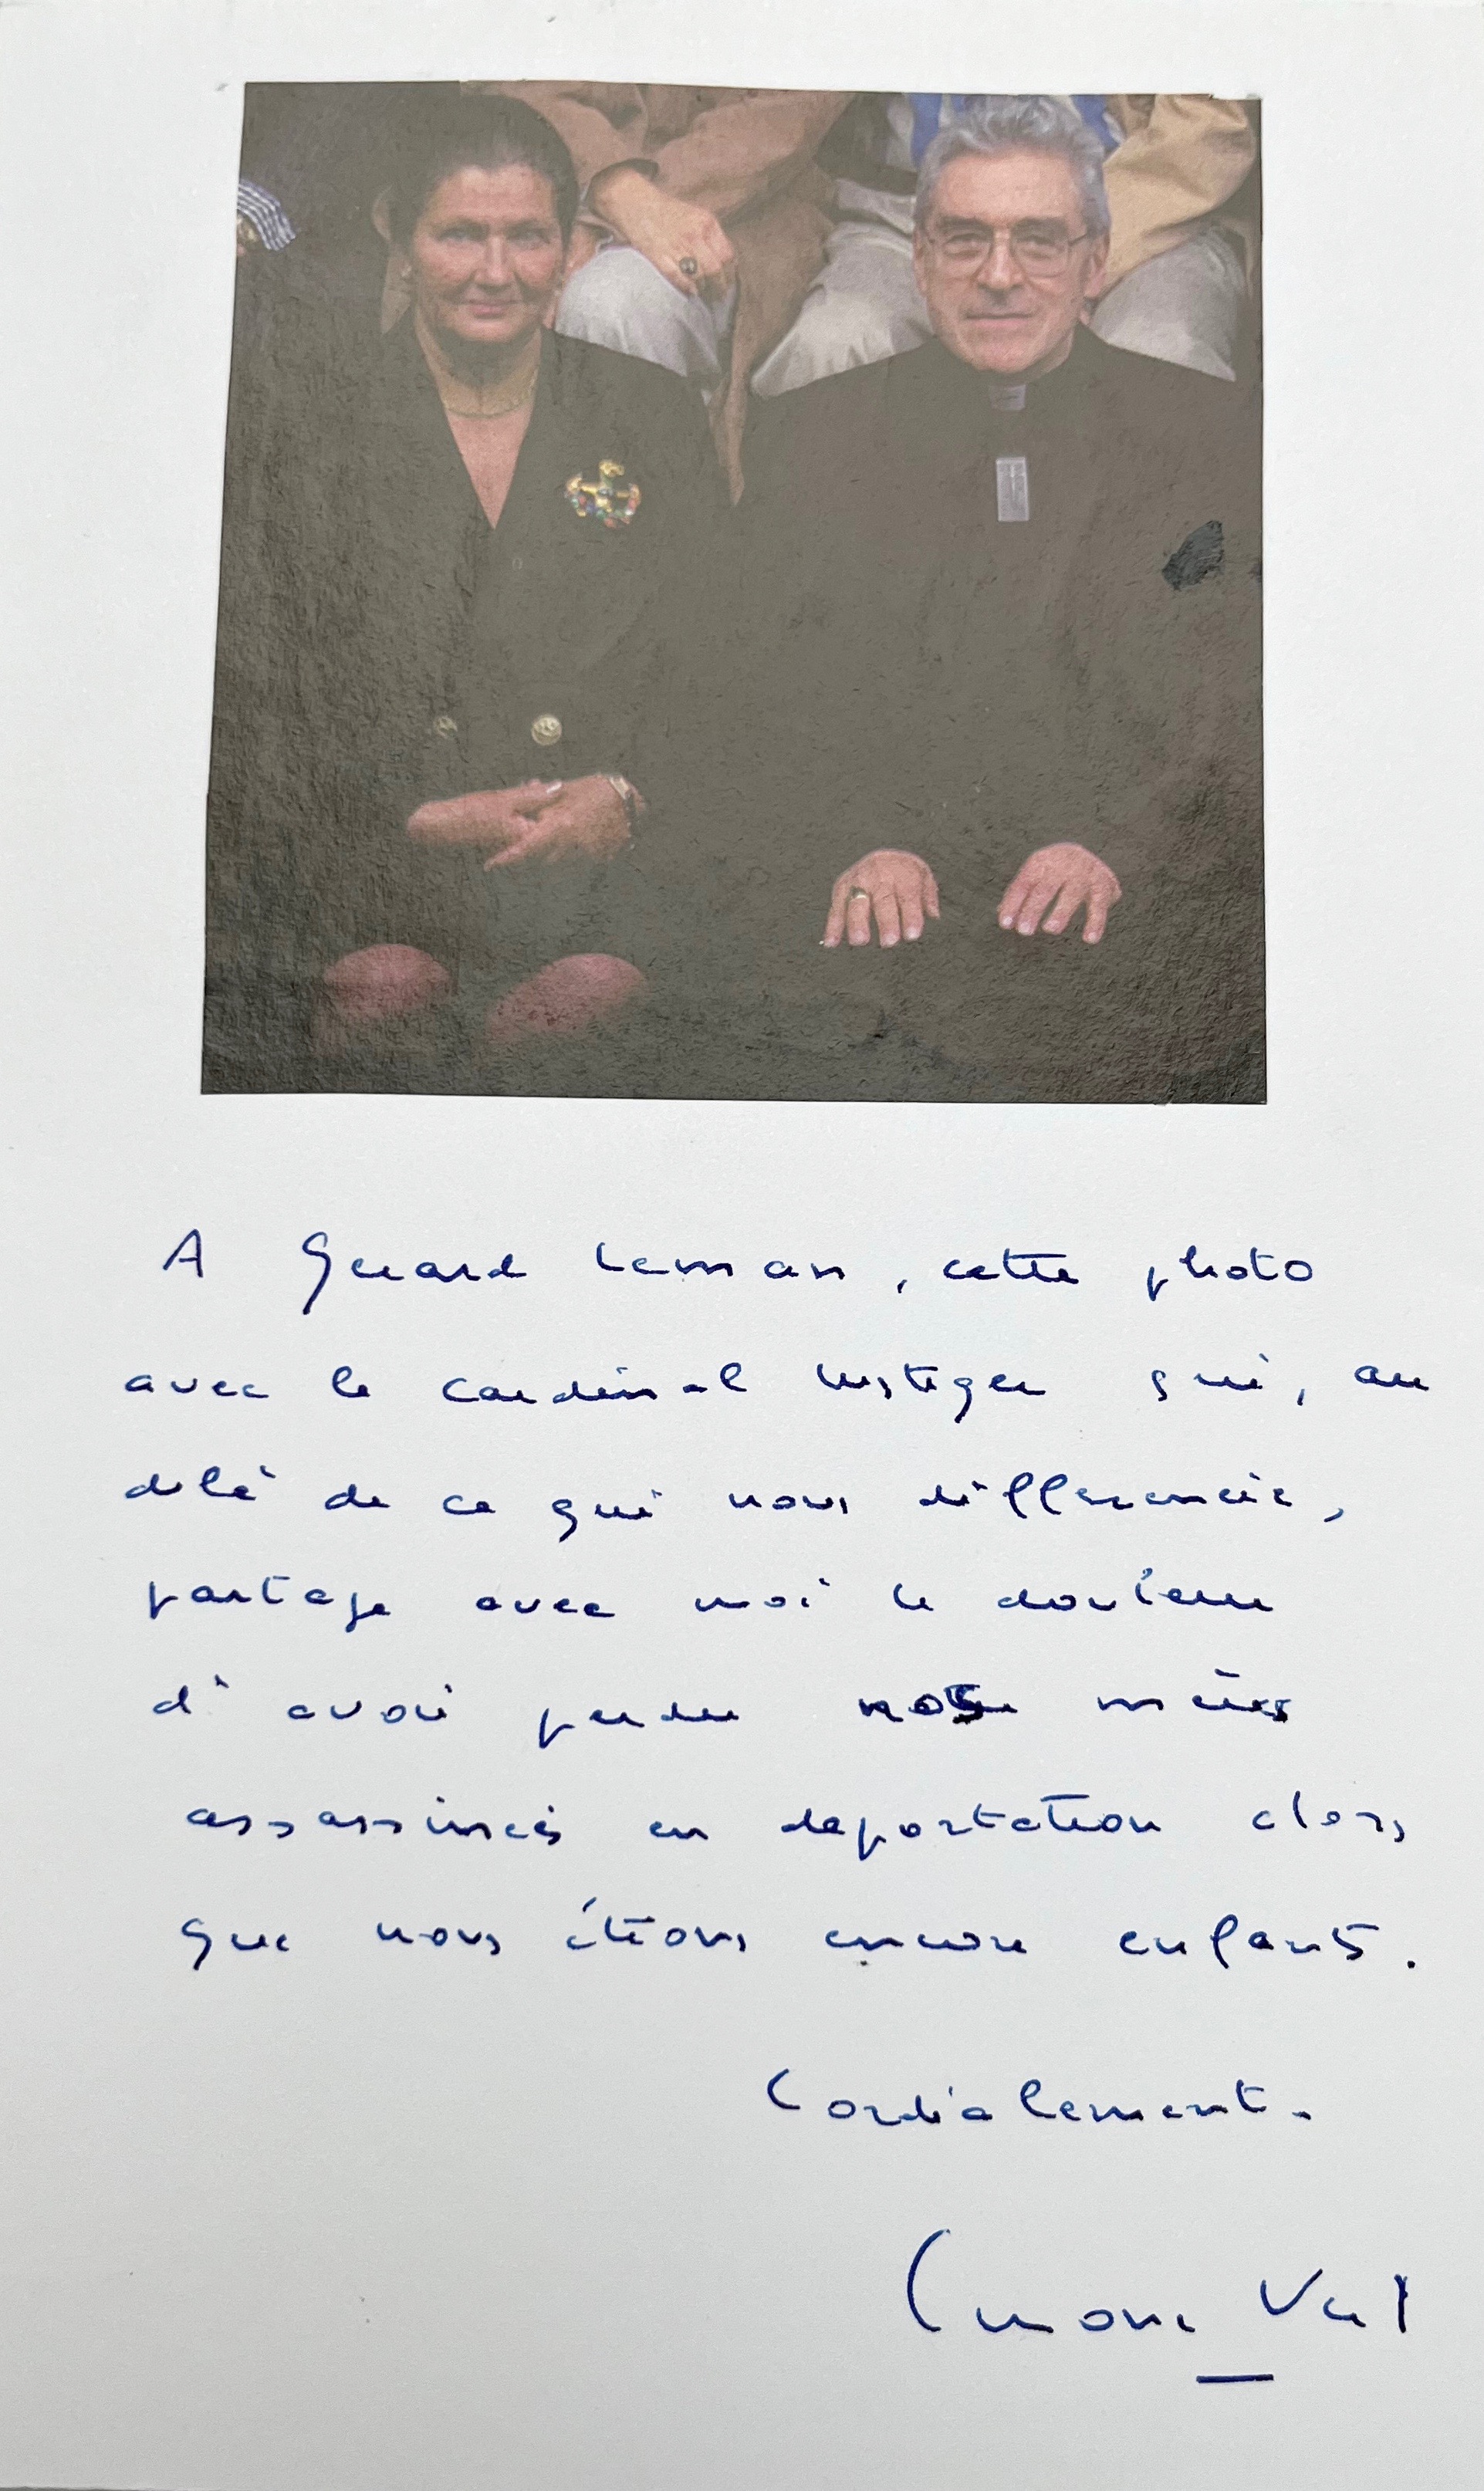 A Gérard Leman, cette photo
avec le cardinal Lustiger qui, au
delà de ce qui nous différencie,
partage avec moi la douleur
d'avoir perdu nos mères
assassinées en déportation alors
que nous étions encore enfants.
Cordialement.
Simone Veil